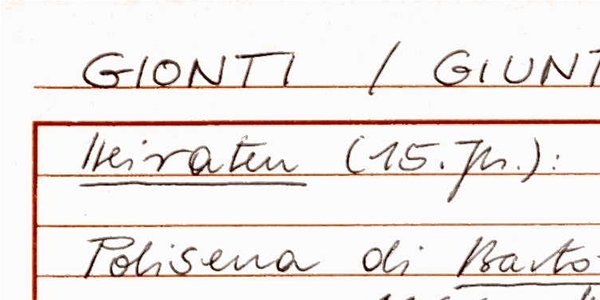 GIONTI / GIUNT
Heiraten (15. Jh.):
Polisena di Barto